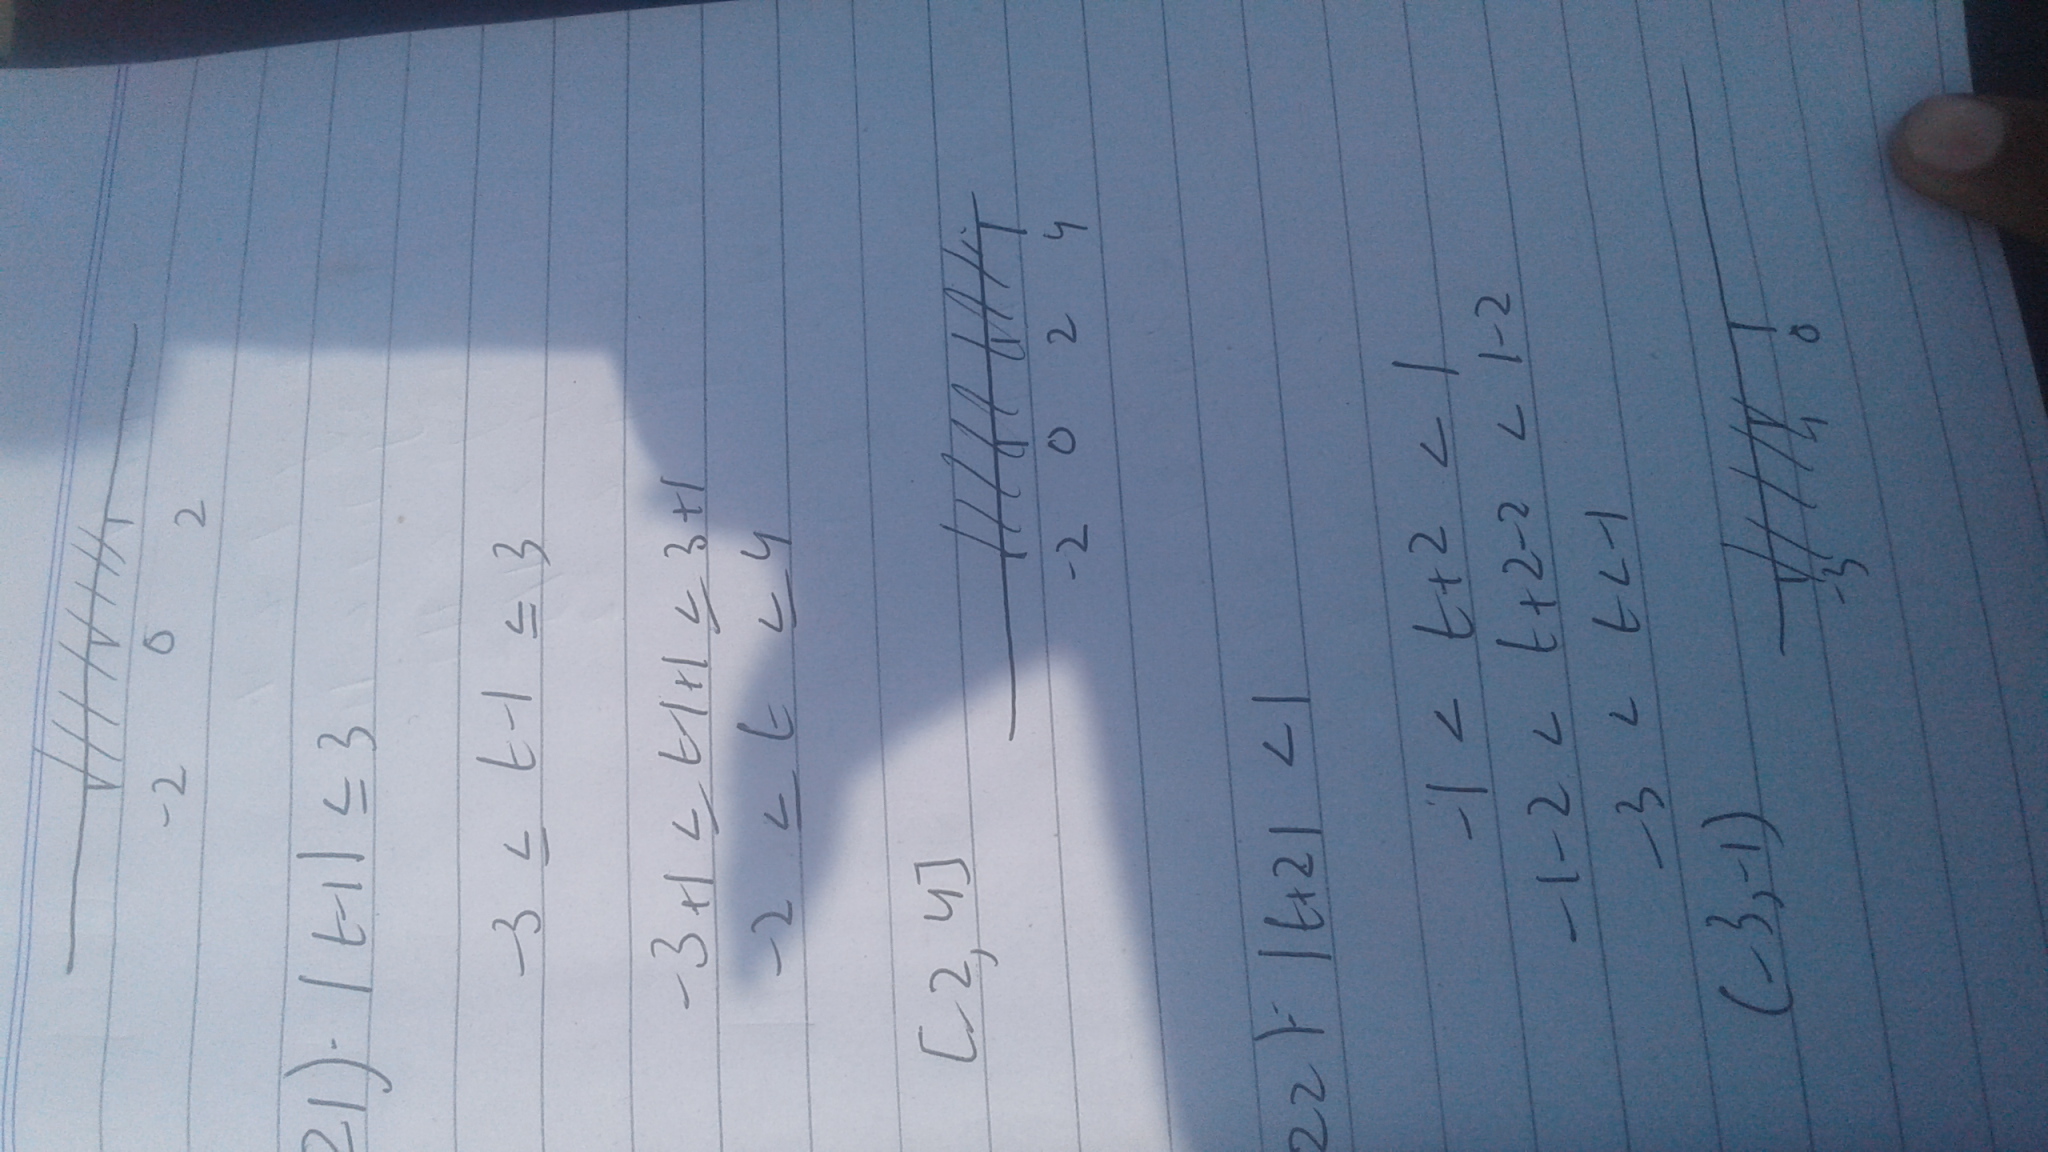 -2 0 2
21) |t-1| ≤ 3
-3 ≤ t-1 ≤ 3
-3+1 ≤ t-1+1 ≤ 3+1
-2 ≤ t ≤ 4
[-2, 4]
-2 0 2 4
22) |t+2| < 1
-1 < t+2 < 1
-1-2 < t+2-2 < 1-2
-3 < t < -1
(-3, -1)
-3 -1 0